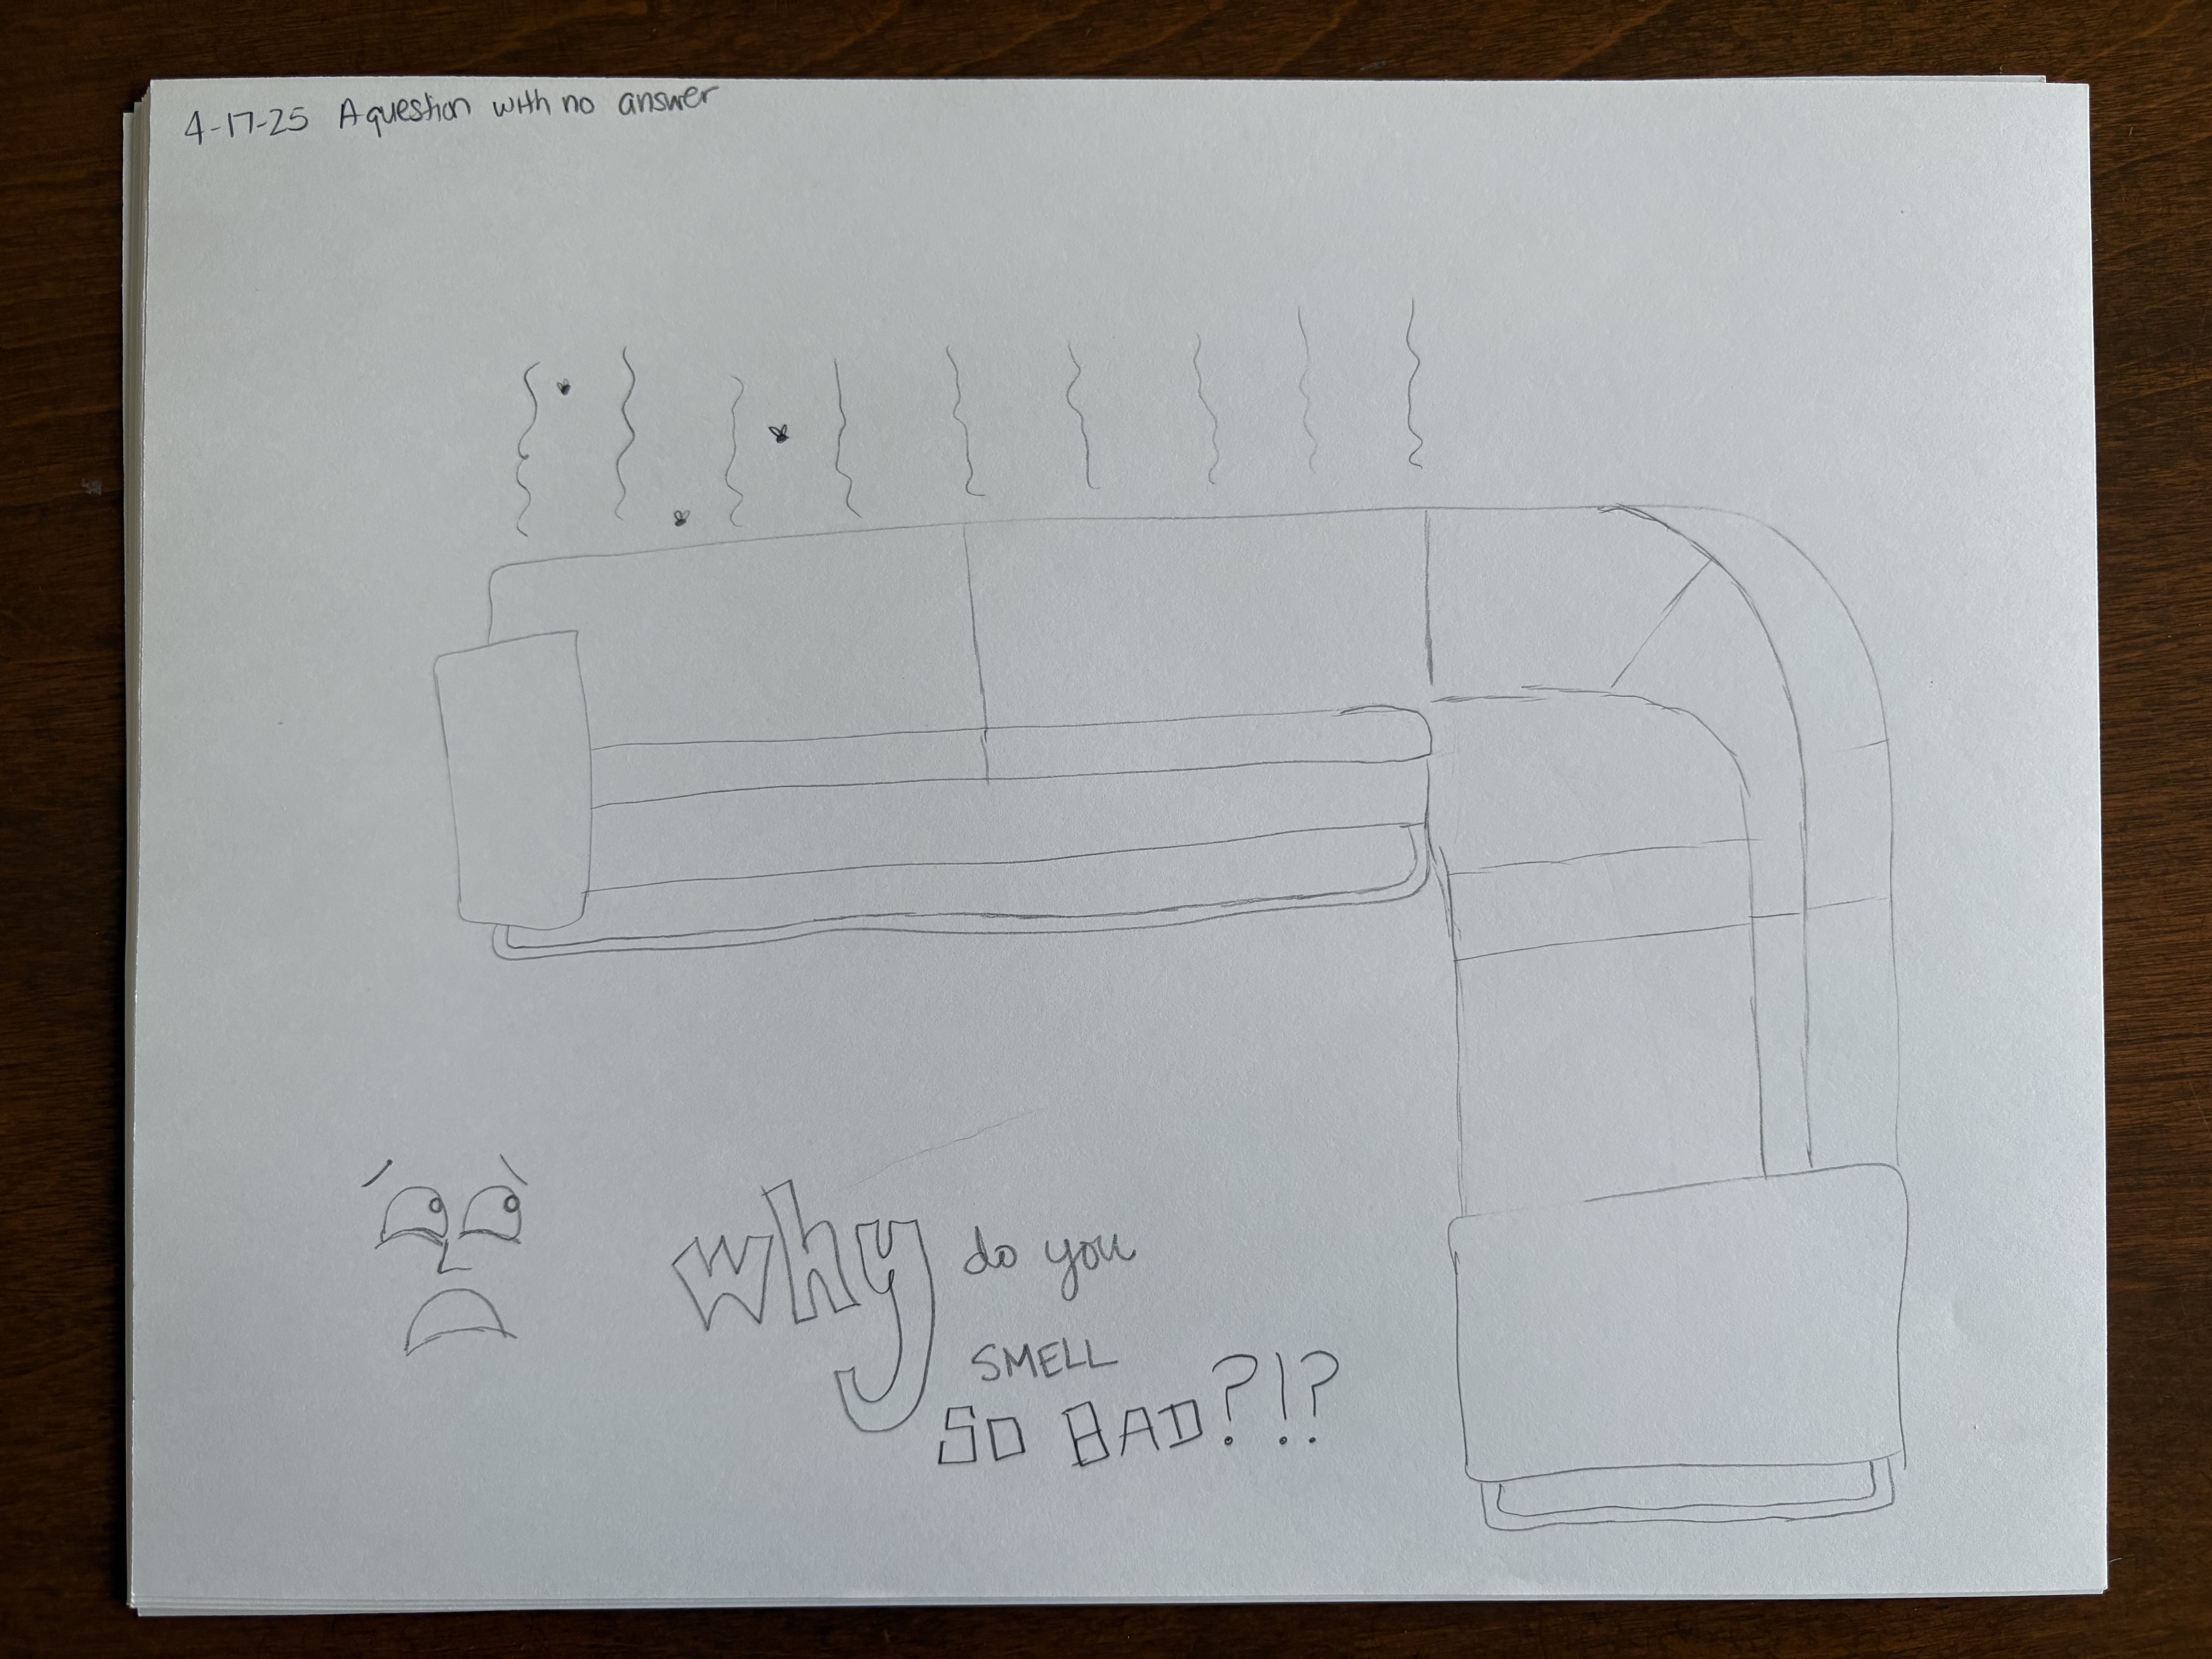 4-17-25 A question with no answer
why do you
SMELL
SO BAD?!?